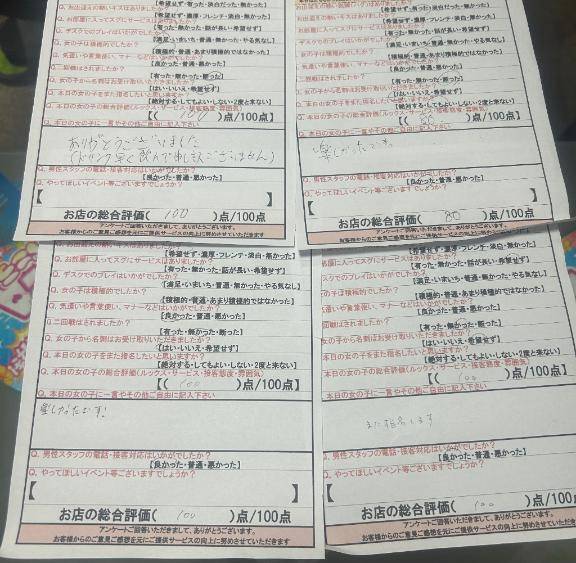 Q. お出迎えの軽いキスはありましたか?
【希望せず・有った・淡白だった・無かった】
Q. お部屋に入ってスグにサービスはありましたか?
【希望せず・濃厚・フレンチ・淡白・無かった】
【有った・無かった・話が長い・希望せず】
Q. デスクでのプレイはいかがでしたか?
【満足・いまいち・普通・無かった・やる気なし】
Q. 女の子は積極的でしたか?
【積極的・普通・あまり積極的ではなかった】
Q. 気遣いや言葉使い、マナーなどはいかがでしたか?
【良かった・普通・悪かった】
Q. 二回戦はされましたか?
【有った・無かった・断った】
Q. 女の子から名刺はお受け取りいただきましたか?
【はい・いいえ・希望せず】
Q. 本日の女の子をまた指名したいと思いますか?
【絶対する・してもよい・しない・2度と来ない】
Q. 本日の女の子の総合評価(ルックス・サービス・接客態度・雰囲気)
【( 100 )点/100点
Q. 本日の女の子に一言やその他ご自由に記入下さい
ありがとうございました
(ドリンク早く飲んで申し訳ございません)
Q. 男性スタッフの電話・接客対応はいかがでしたか?
【良かった・普通・悪かった】
Q. やってほしいイベント等ございますでしょうか?
【 】
お店の総合評価( 100 )点/100点
アンケートご回答いただきまして、ありがとうございます。
お客様からのご意見ご感想を元にご提供サービスの向上に努めさせていただきます
【希望せず・有った・淡白だった・無かった】
【希望せず・濃厚・フレンチ・淡白・無かった】
【有った・無かった・話が長い・希望せず】
【満足・いまいち・普通・無かった・やる気なし】
【積極的・普通・あまり積極的ではなかった】
【良かった・普通・悪かった】
Q. 二回戦はされましたか?
【有った・無かった・断った】
Q. 女の子から名刺はお受け取りいただきましたか?
【はい・いいえ・希望せず】
Q. 本日の女の子をまた指名したいと思いますか?
【絶対する・してもよい・しない・2度と来ない】
Q. 本日の女の子の総合評価(ルックス・サービス・接客態度・雰囲気)
【( 80 )点/100点
Q. 本日の女の子に一言やその他ご自由に記入下さい
楽しかったです。
Q. 男性スタッフの電話・接客対応はいかがでしたか?
【良かった・普通・悪かった】
Q. やってほしいイベント等ございますでしょうか?
【 】
お店の総合評価( 80 )点/100点
アンケートご回答いただきまして、ありがとうございます。
お客様からのご意見ご感想を元にご提供サービスの向上に努めさせていただきます
【希望せず・濃厚・フレンチ・淡白・無かった】
Q. お部屋に入ってスグにサービスはありましたか?
【有った・無かった・話が長い・希望せず】
Q. デスクでのプレイはいかがでしたか?
【満足・いまいち・普通・無かった・やる気なし】
Q. 女の子は積極的でしたか?
【積極的・普通・あまり積極的ではなかった】
Q. 気遣いや言葉使い、マナーなどはいかがでしたか?
【良かった・普通・悪かった】
Q. 二回戦はされましたか?
【有った・無かった・断った】
Q. 女の子から名刺はお受け取りいただきましたか?
【はい・いいえ・希望せず】
Q. 本日の女の子をまた指名したいと思いますか?
【絶対する・してもよい・しない・2度と来ない】
Q. 本日の女の子の総合評価(ルックス・サービス・接客態度・雰囲気)
【( 100 )点/100点
Q. 本日の女の子に一言やその他ご自由に記入下さい
楽しかったです!
Q. 男性スタッフの電話・接客対応はいかがでしたか?
【良かった・普通・悪かった】
Q. やってほしいイベント等ございますでしょうか?
【 】
お店の総合評価( 100 )点/100点
アンケートご回答いただきまして、ありがとうございます。
お客様からのご意見ご感想を元にご提供サービスの向上に努めさせていただきます
【希望せず・濃厚・フレンチ・淡白・無かった】
お部屋に入ってスグにサービスはありましたか?
【有った・無かった・話が長い・希望せず】
スクでのプレイはいかがでしたか?
【満足・いまいち・普通・無かった・やる気なし】
の子は積極的でしたか?
【積極的・普通・あまり積極的ではなかった】
遣いや言葉使い、マナーなどはいかがでしたか?
【良かった・普通・悪かった】
回戦はされましたか?
【有った・無かった・断った】
女の子から名刺はお受け取りいただきましたか?
【はい・いいえ・希望せず】
本日の女の子をまた指名したいと思いますか?
【絶対する・してもよい・しない・2度と来ない】
本日の女の子の総合評価(ルックス・サービス・接客態度・雰囲気)
【( 100 )点/100点
本日の女の子に一言やその他ご自由に記入下さい
また指名します
Q. 男性スタッフの電話・接客対応はいかがでしたか?
【良かった・普通・悪かった】
Q. やってほしいイベント等ございますでしょうか?
【
お店の総合評価( 100 )点/100点
アンケートご回答いただきまして、ありがとうございます。
お客様からのご意見ご感想を元にご提供サービスの向上に努めさせていただきます